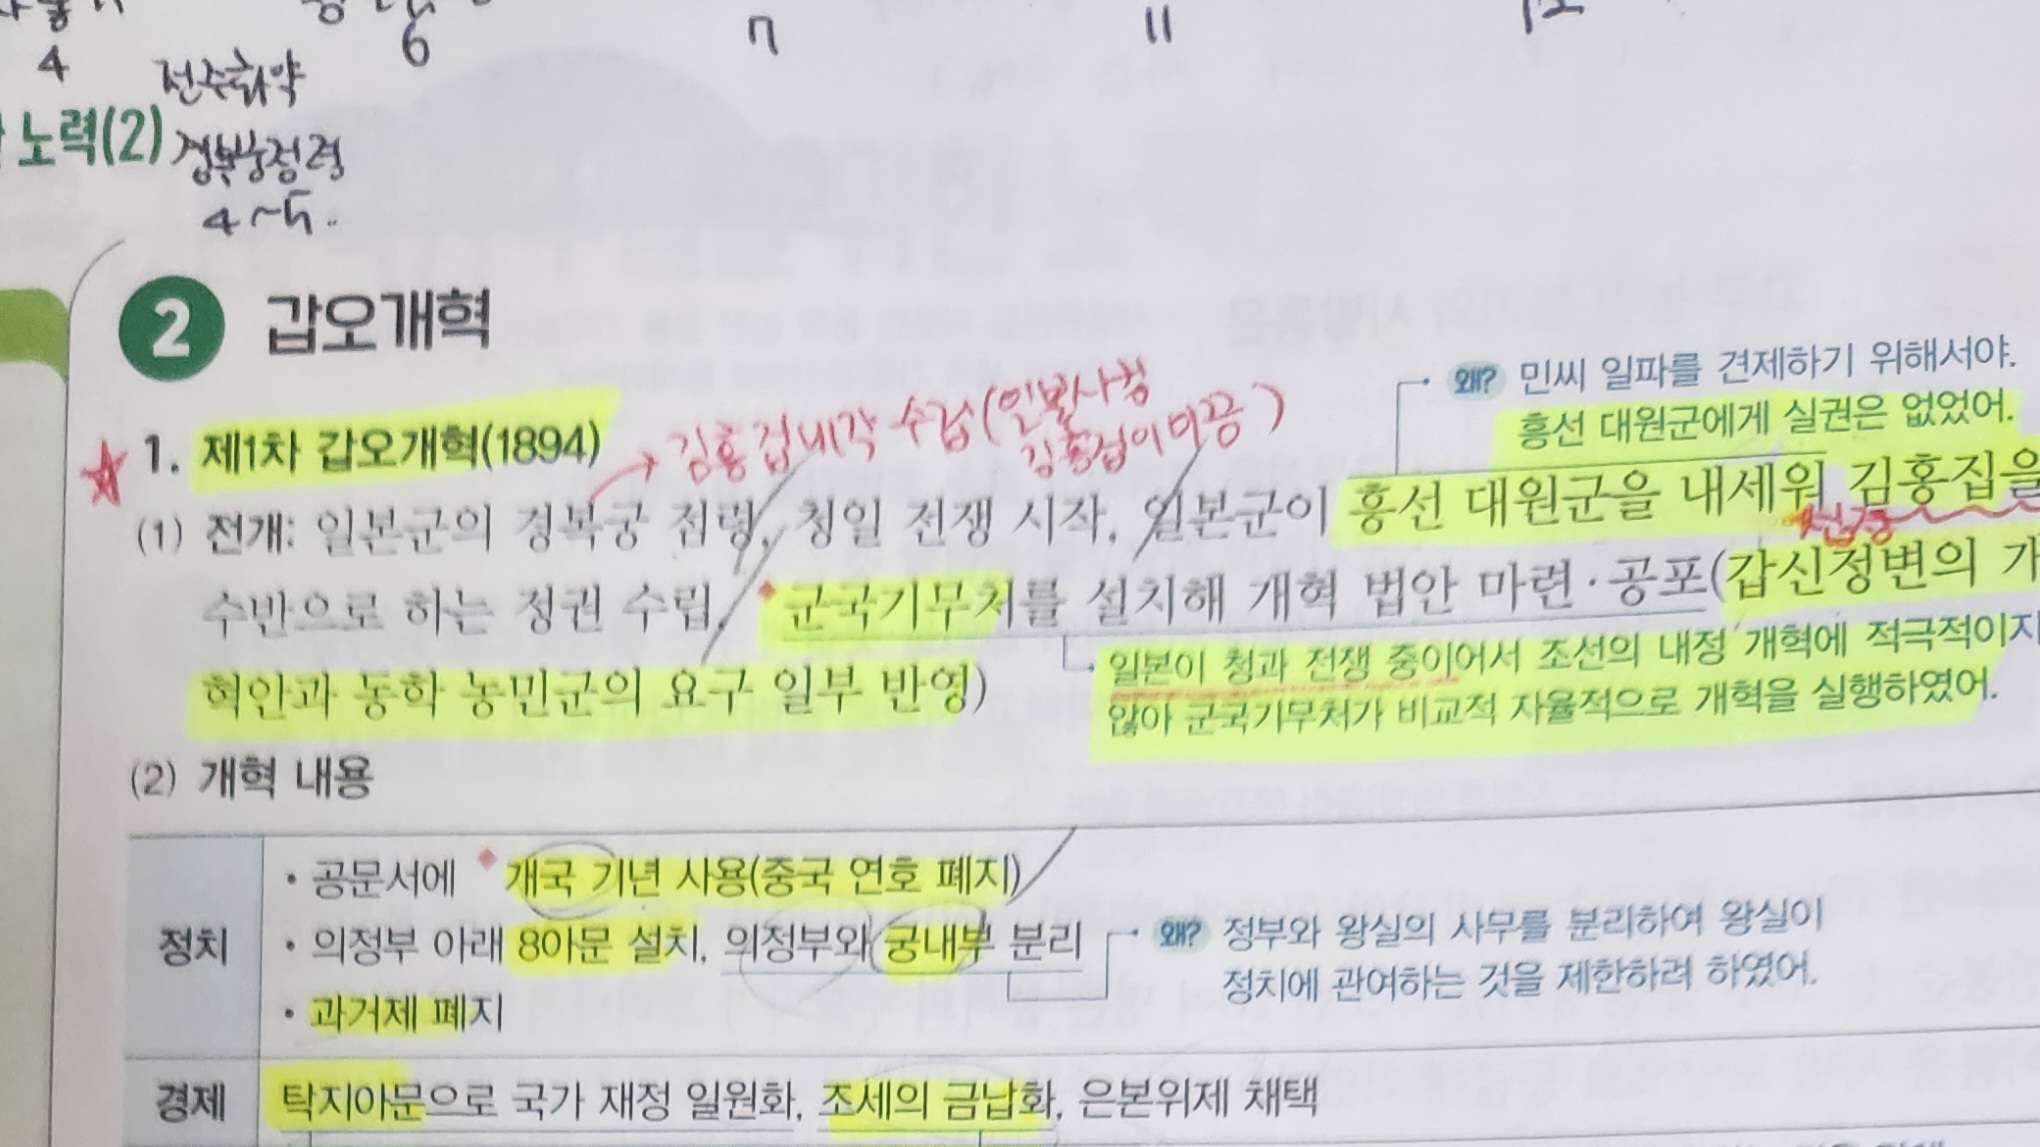 4
6
7
11
12
전주화약
노력(2)
경복궁점령
4~5.
2 갑오개혁
왜? 민씨 일파를 견제하기 위해서야.
흥선 대원군에게 실권은 없었어.
1. 제1차 갑오개혁(1894)
→ 김홍집내각 수립(일본사정
김홍집이 이끔)
(1) 전개: 일본군의 경복궁 점령, 청일 전쟁 시작, 일본군이 흥선 대원군을 내세워 김홍집을
수반으로 하는 정권 수립, 군국기무처를 설치해 개혁 법안 마련·공포(갑신정변의 개
혁안과 동학 농민군의 요구 일부 반영)
일본이 청과 전쟁 중이어서 조선의 내정 개혁에 적극적이지
않아 군국기무처가 비교적 자율적으로 개혁을 실행하였어.
(2) 개혁 내용
정치
• 공문서에 개국 기년 사용(중국 연호 폐지)
• 의정부 아래 8아문 설치, 의정부와 궁내부 분리
• 과거제 폐지
왜? 정부와 왕실의 사무를 분리하여 왕실이
정치에 관여하는 것을 제한하려 하였어.
경제
탁지아문으로 국가 재정 일원화, 조세의 금납화, 은본위제 채택